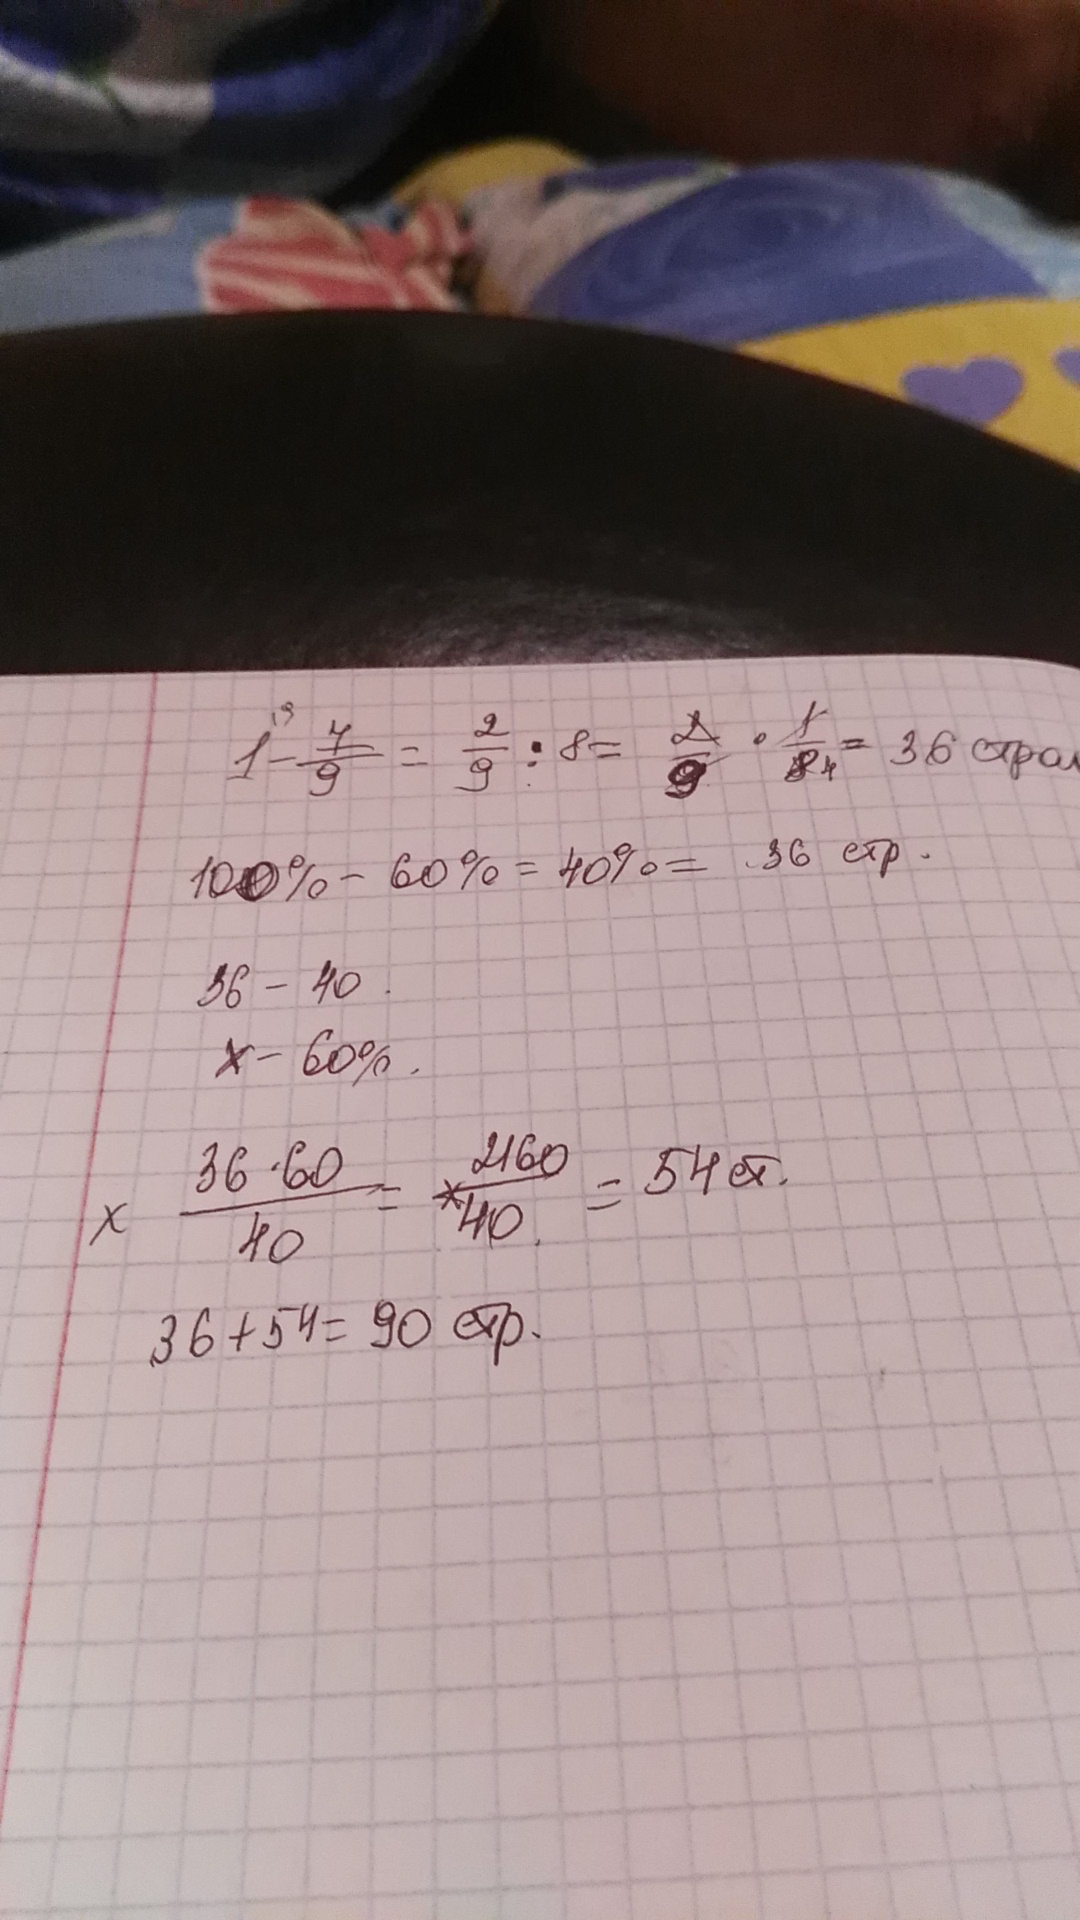 1 - 7/9 = 2/9 : 8 = 2/9 · 1/84 = 36 стран
100% - 60% = 40% = 36 стр.
36 - 40
x - 60%.
x 36·60/40 = 2160/40 = 54 ст.
36+54= 90 стр.